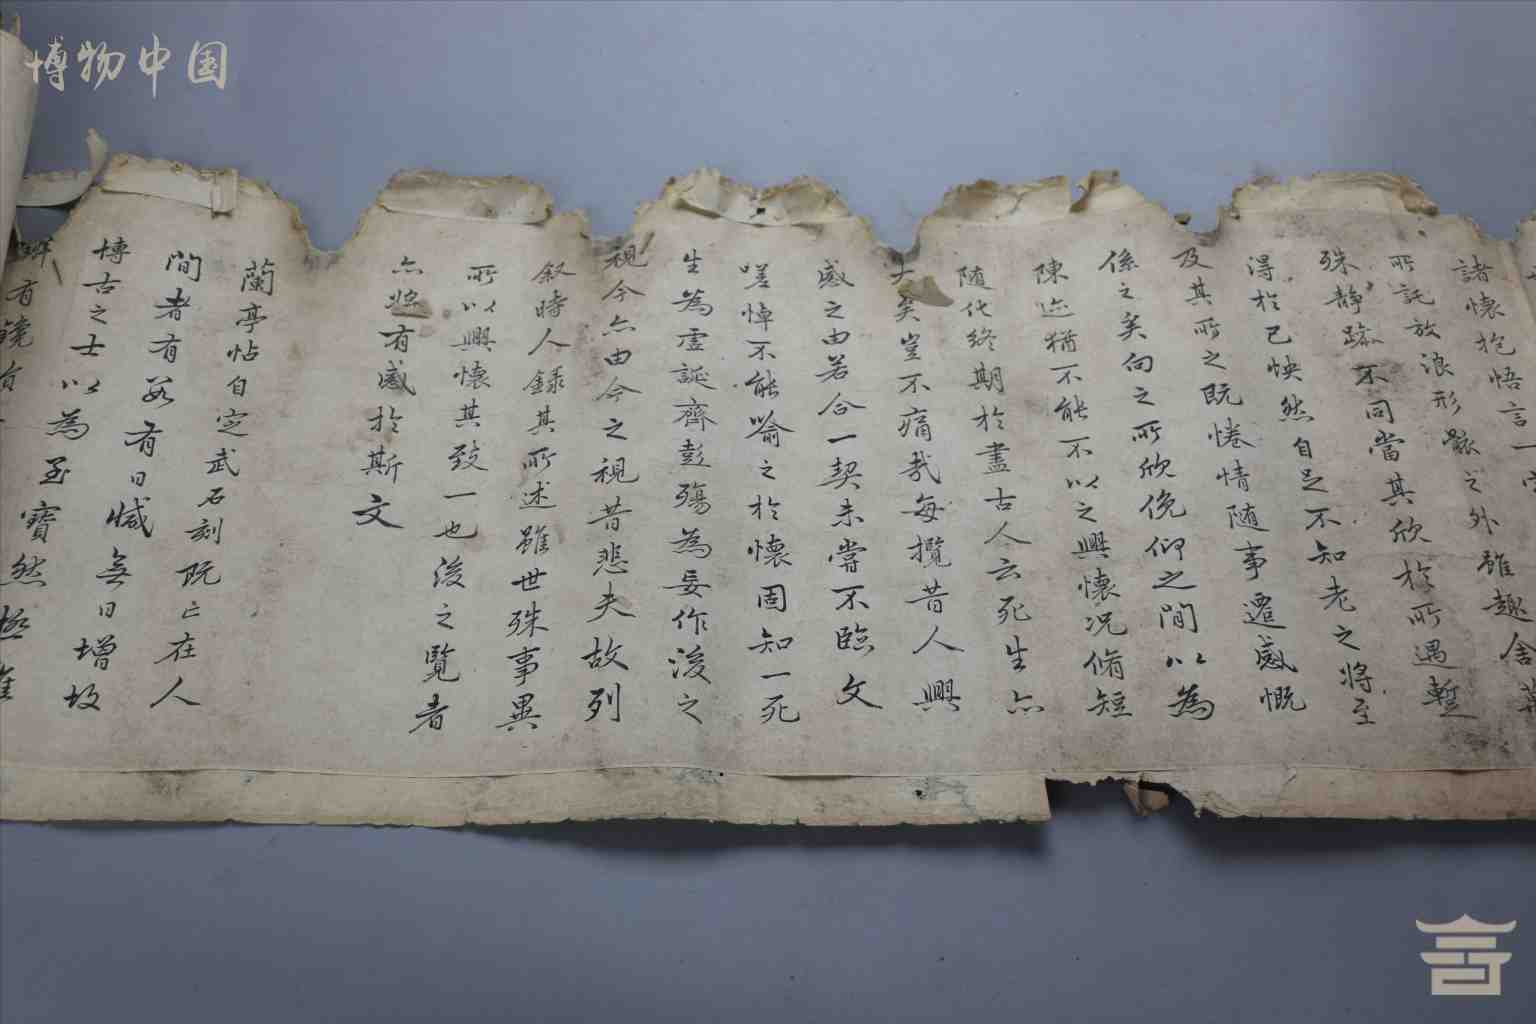 博物中国
諸懷抱悟言一
所託放浪形骸之外雖趣舍萬
殊靜躁不同當其欣於所遇暫
得於己怏然自足不知老之將至
及其所之既惓情随事遷感慨
係之矣向之所欣俛仰之間以為
陳迹猶不能不以之興懷況脩短
随化終期於盡古人云死生亦
大矣豈不痛哉每攬昔人興
感之由若合一契未嘗不臨文
嗟悼不能喻之於懷固知一死
生為虛誕齊彭殤為妄作後之
視今亦由今之視昔悲夫故列
叙時人錄其所述雖世殊事異
所以興懷其致一也後之覽者
亦將有感於斯文
蘭亭帖自定武石刻既亡在人
間者有數有日減無日增故
博古之士以為至寶然極難
辨有鐫